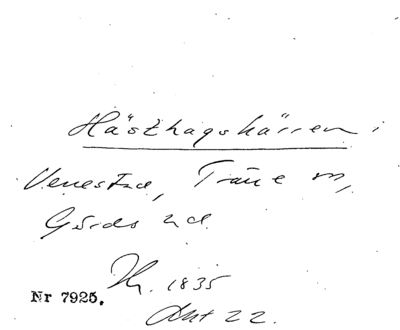 Hästhagskärren i
Venestad, Träne sn,
Gärds hd.
Kr. 1835
Akt 22.
Nr 7925.